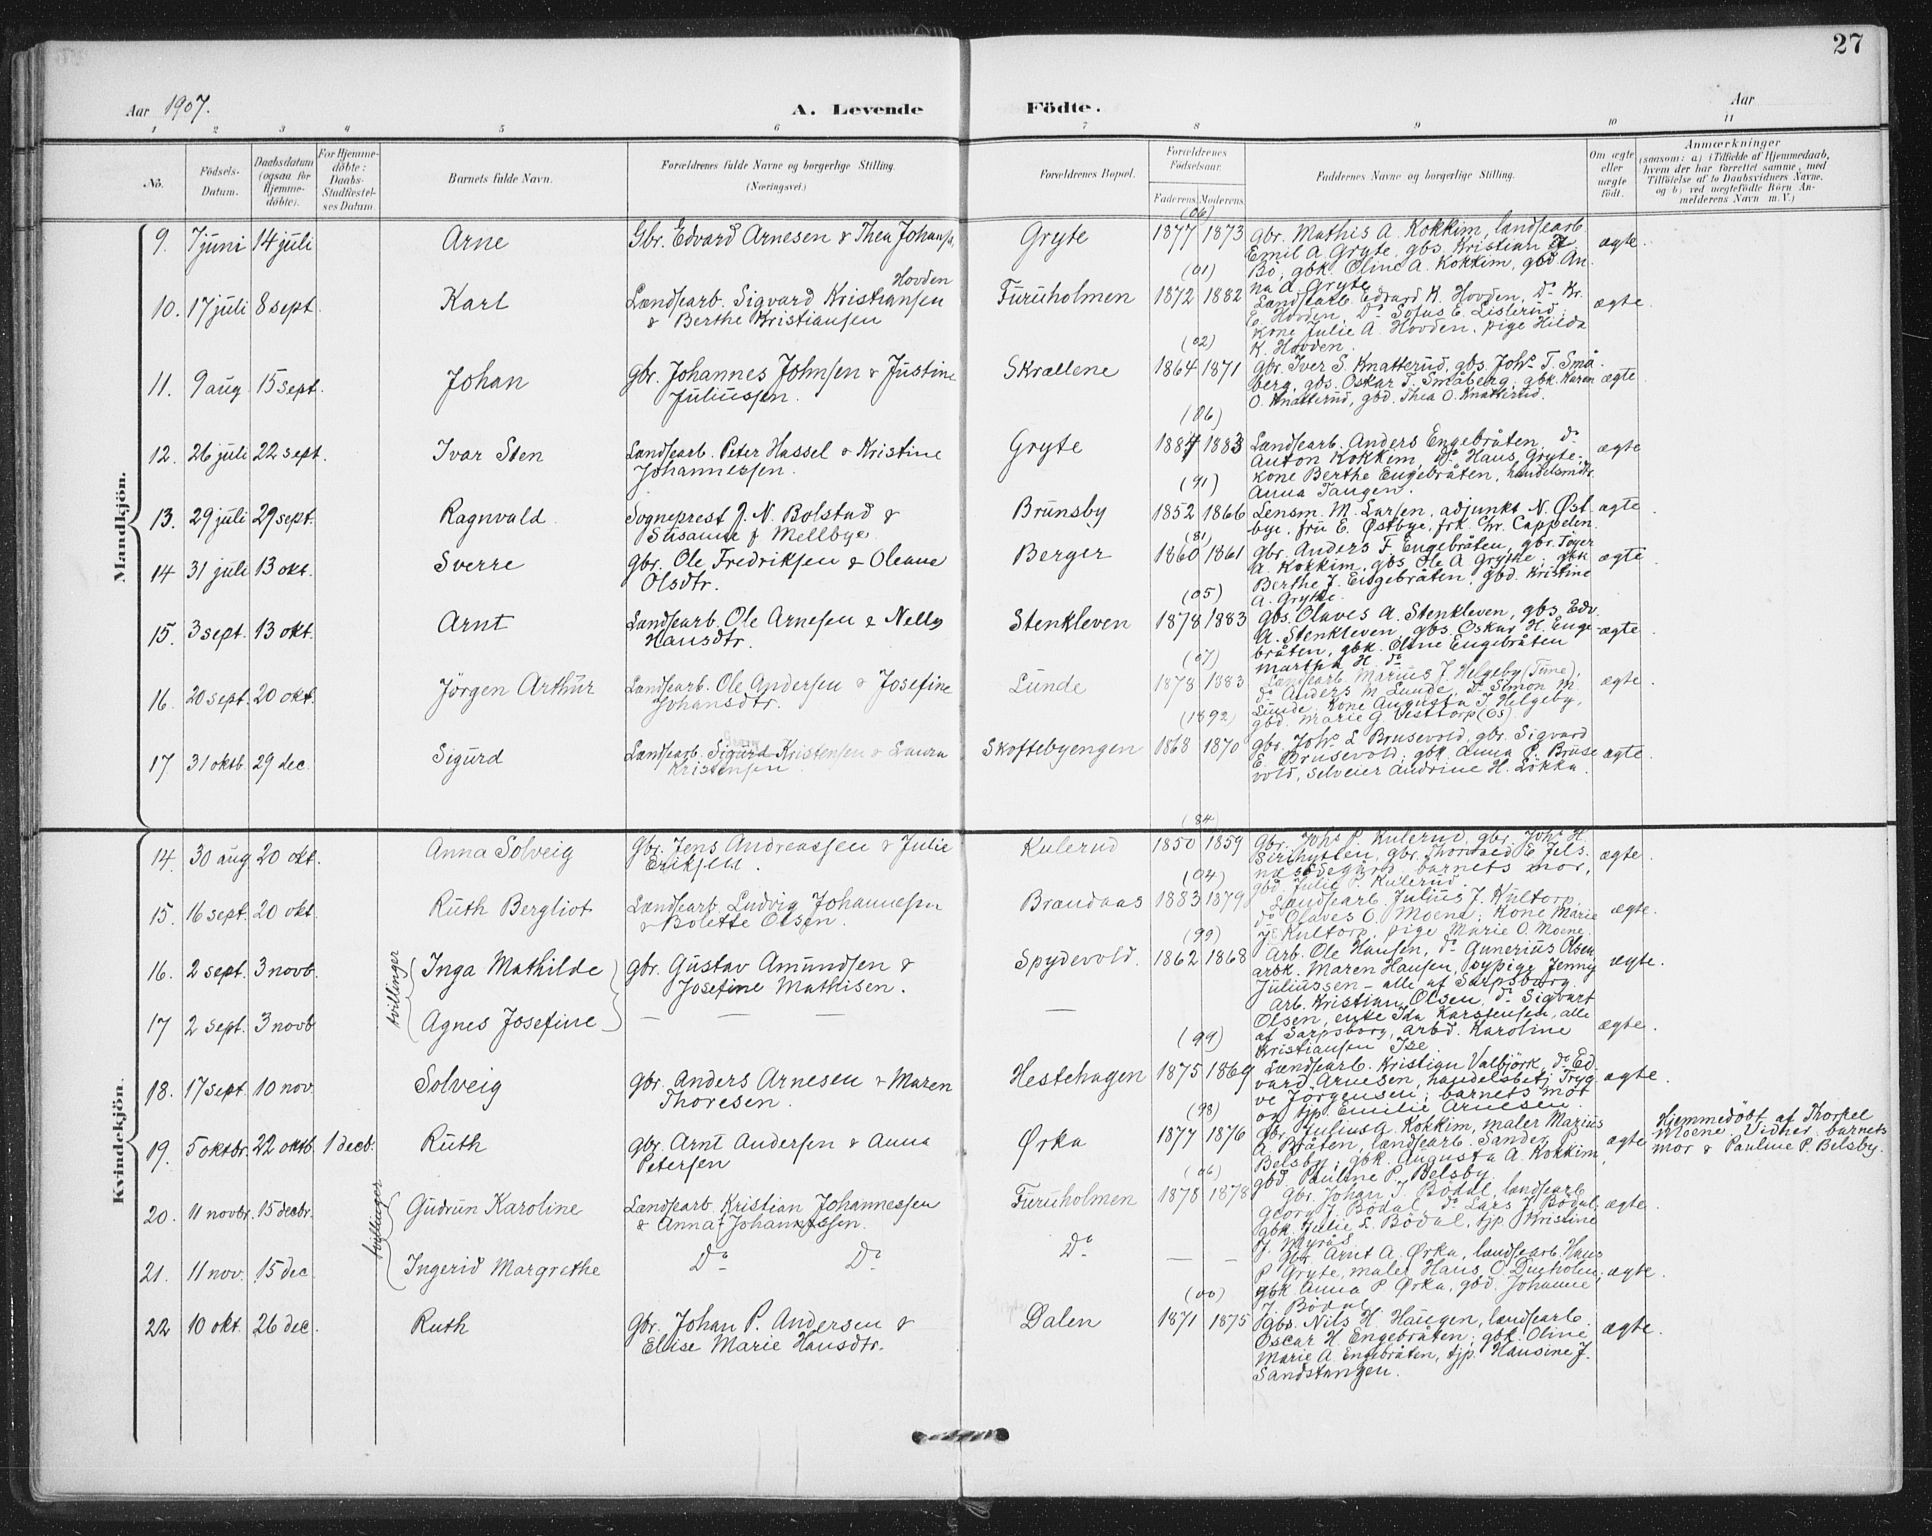 27
Aar 1907.
A. Levende Födte.
Aar
1 2 3 4 5 6 7 8 9 10 11
No.
Födsels-Datum.
Daabsdatum (ogsaa for Hjemmedöbte).
For Hjemmedöbte: Daabs-Stadfæstelses Datum.
Barnets fulde Navn.
Forældrenes fulde Navne og borgerlige Stilling. (Næringsvei.)
Forældrenes Bopæl.
Forældrenes Födselsaar.
Faderens. Moderens.
Faddernes Navne og borgerlige Stilling.
Om ægte eller uægte födt.
Anmærkninger
(saasom: a) i Tilfælde af Hjemmedaab, hvem der har forrettet samme, med Tilföielse af to Daabsvidners Navne, og b) ved uægtefödte Börn Anmelderens Navn m.V.)
Mandkjön.
9. 7 juni 14 juli Arne Gbr. Edvard Arnesen & Thea Johans Gryte (06) 1877 1873 gbr. Mathis A. Kokkim, landsearb. ægte.
Emil A. Gryte, gbs. Kristian
Bö, gbk. Oline A. Kokkim, gbd An-
na A. Gryte
10. 17 juli 8 sept. Karl Landsearb. Sigvard Kristiansen Hovden Furuholmen (01) 1872 1882 Landsearb. Edvard K. Hovden, Do Kr. ægte.
& Berthe Kristiansen E. Hovden, Do Sofus E. Listerud;
kone Julie A. Hovden, pige Hilda
K. Hovden.
11. 9 aug 15 sept. Johan gbr. Johannes Johnsen & Justine Skrællene (02) 1864 1871 gbr. Iver S. Knatterud, gbs. Johs T. Små- ægte.
Juliussen. berg, gbs. Oskar T. Småberg, gbk. Karen
O. Knatterud, gbd. Thea O. Knatterud.
12. 26 juli 22 sept. Ivar Sten Landsearb. Peter Hassel & Kristine Gryte (06) 1884 1883 Landsearb. Anders Engebråten, do ægte
Johannessen. Anton Kokkim, Do Hans Gryte,
kone Berthe Engebråten, handelsmdtr.
Anna Tangen.
13. 29 juli 29 sept. Ragnvald Sogneprest J. N. Bolstad & Brunsby (91) 1852 1866 Lensm. M. Larsen, adjunkt N. Øst- ægte.
Susanne f. Mellbye bye, fru E. Østbye, frk. Chr. Cappelen.
14 31 juli 13 okt. Sverre gbr. Ole Fredriksen & Oleane Berger (81) 1860 1861 gbr. Anders F. Engebråten, gbr. Toger ægte.
Olsdtr. A. Kokkim, gbs Ole A. Grytte, gbk
Berthe J. Engebråten, gbd. Kristine
A. Grytte.
15. 3 sept. 13 okt. Arnt Landsearb. Ole Arnesen & Nelly Stenkleven (05) 1878 1883 gbs. Olaves A. Stenkleven, gbs. Edv. ægte
Hansdtr. A. Stenkleven, gbs. Oskar H. Enge-
bråten, gbk. Oline Engebråten
Martha H. do
16. 20 sept. 20 okt. Jörgen Arthur Landsearb. Ole Andersen & Josefine Lunde (07) 1878 1883 Landsearb. Marius J. Helgeby (Tune), ægte.
Johansdtr. do Anders M. Lunde, do Simon M.
Lunde, kone Augusta J. Helgeby,
gbd. Marie G. Vesttorp (Os).
17 31 oktb. 29 dec. Sigurd Landsearb. Sigurd Kristensen & Laura Skoftebyengen (1892) 1868 1870 gbr. Johs. L. Brusevold, gbr. Sigvard ægte.
Kristensen E. Brusevold, gbk. Anna P. Bruse
vold, selveier Andrine H. Lökka.
Kvindekjön.
14. 30 aug 20 okt. Anna Solveig Gbr. Jens Andreassen & Julie Kulerud (84) 1850 1859 Gbr. Johs P. Kulerud, gbr. Johs H. ægte.
Eriksen. Sirihytten, gbr. Thorvald E. Jels-
næsödegård, barnets mor,
gbd. Julie P. Kulerud.
15. 16 sept. 20 okt. Ruth Bergliot Landsearb. Ludvig Johannessen Brandaas (04) 1883 1879 Landsearb. Julius J. Kultorp, ægte.
& Bolette Olsen. do Olaves O. Moene; kone Marie
J. Kultorp, pige Marie O. Moene.
tvillinger
16. 2 sept. 3 novb. Inga Mathilde gbr. Gustav Amundsen & Spydevold. (99) 1862 1868 Arb. Ole Hansen, do Gunerius Olsen ægte.
Josefine Mathisen. arbk. Maren Hansen, sypige Jenny
Juliussen - alle af Sarpsborg.
17 2 sept. 3 novb Agnes Josefine — — — — Arb. Kristian Olsen, do Sigvart ægte.
Olsen, enke Ida Karstensen, alle
af Sarpsborg, arbd. Karoline
Kristiansen Ise.
18. 17 sept 10 nov Solveig gbr. Anders Arnesen & Maren Hestehagen (99) 1875 1869 Landsearb. Kristian Valbjörk, do Ed- ægte.
Thoresen. vard Arnesen, handelsbetj Tryg-
ve Jörgensen; barnets mor
og tjp. Emilie Arnesen.
19. 5 oktbr. 22 oktb. 1 decb. Ruth gbr. Arnt Andersen & Anna Ørka (98) 1877 1876 Gbr. Julius A. Kokkim, maler Marius ægte
Petersen A. Bråten, landsearb. Sander P.
Belsby; gbk. Augusta A. Kokkim,
gbd. Pauline P. Belsby.
Hjemmedöbt af Thorkel
Moene. Vidner barnets
mor & Pauline P. Belsby.
tvillinger
20. 11 novbr. 15 decbr. Gudrun Karoline Landsearb. Kristian Johannessen Furuholmen (06) 1878 1878 gbr. Johan J. Bödal, landsearb. ægte.
& Anna Johannessen. Georg J. Bödal, do Lars J. Bödal,
gbk. Julie L. Bödal, tjp. Kristine
J. Myrås
21. 11 nov. 15 dec. Ingerid Margrethe Do Do Do — — gbr. Arnt A. Ørka, landsearb. Hans ægte.
P. Gryte, maler Hans O. Dueholen,
gbk Anna P. Ørka, gbd. Johanne
J. Bödal.
22 10 okt. 26 dec. Ruth Gbr. Johan P. Andersen & Dalen (00) 1871 1875 gbs. Nils H. Haugen, landsearb. ægte.
Ellise Marie Hansdtr. Oscar H. Engebråten; gbk. Oline
Marie A. Engebråten, tjp. Hansine J.
Sandstangen.